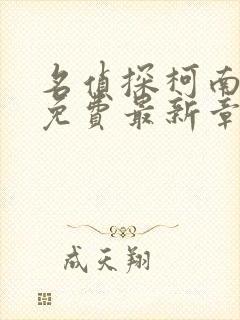 名偵探柯南
免費最新章
成天翔